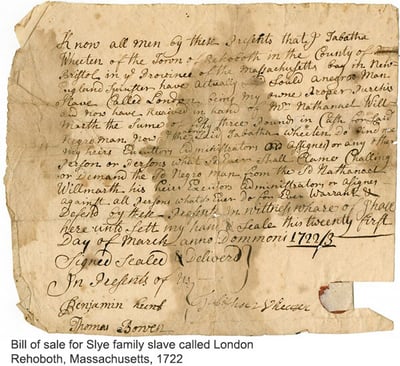 Know all men by these Presents that I Tabatha
Wheten of the Town of Rehoboth in the County of
Bristol in ye Province of the Massachusetts bay in New
England Spinster have Actually Sould a negro Man
Slave Called London being my owne Proper
and now have Received in hand of Mr Nathanael Will
marth the Sume of three Pound in Cash for Said
Negro man Now I the Said Tabatha Wheten Do
my heirs Executors Administrators or Assignes or any other
Person or Persons whatSoEver Shall Claime Challing
or Demand the Sd Negro Man from the Sd Nathanael
Willmarth his heirs Executors Administrators or Assignes
against all Persons whatsoEver Do for Ever Warrant &
Defend by these Presents in witness whare of I have
here unto Sett my hand & Seale this twenty first
Day of March anno Dommoni 1722/3
Signed Sealed & Deliverd
In Presents of Us
Benjamin
Thomas Bowen
Bill of sale for Slye family slave called London
Rehoboth, Massachusetts, 1722